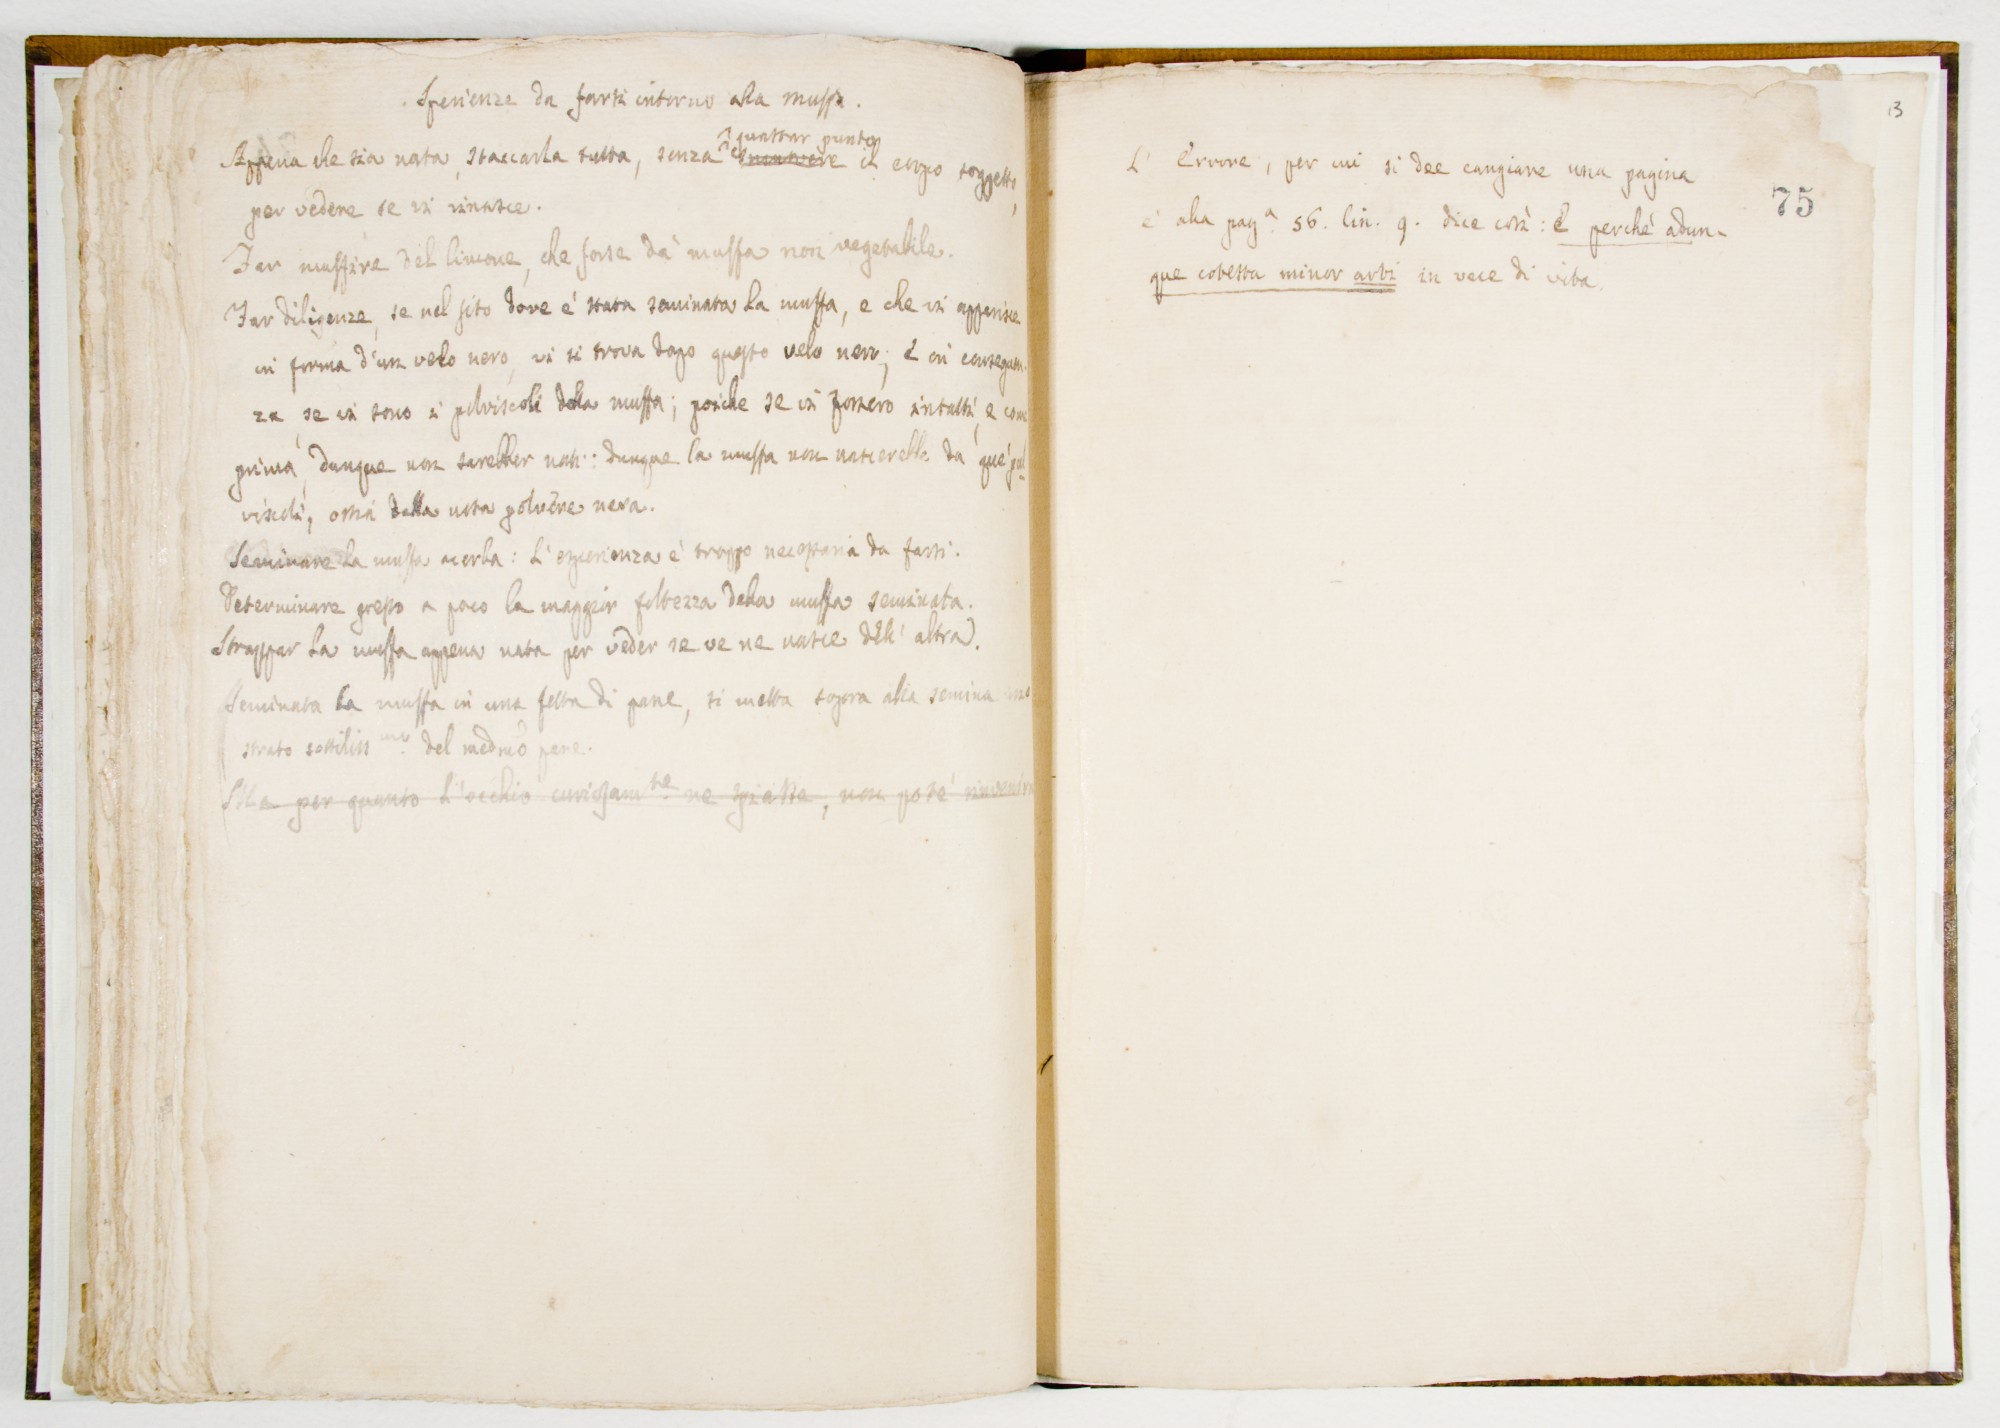 Sperienze da farsi intorno alla muffa.
Appena che sia nata, staccarla tutta, senza guastar punto smuovere il corpo soggetto,
per vedere se vi rinasce.
Far muffire del limone, che forse dà muffa non vegetabile.
Far diligenze, se nel sito dove é stata seminata la muffa, e che vi apparisce
in forma d'un velo nero, vi si trova dopo questo velo nero; e in conseguen-
za se vi sono i polviscoli della muffa; poiche se vi fossero intatti, e come
prima, dunque non sarebber nati: dunque la muffa non nascerebbe da que' pol-
viscoli, ossia dalla nota polvere nera.
Seminare la muffa acerba: L'esperienza é troppo necessaria da farsi.
Determinare presso a poco la maggior foltezza della muffa seminata.
Strappar la muffa appena nata per veder se ve ne nasce dell' altra.
Seminata la muffa in una fetta di pane, si metta sopra alla semina uno
strato sottiliss.mo del medmo pane.
per quanto l'occhio curiosam.te ne spiasse, non poté
13
L' Errore, per cui si dee cangiare una pagina
75
é alla pag.a 56. lin. 9. dice così: E perché adun-
que cotesta minor arbi in vece di vita.